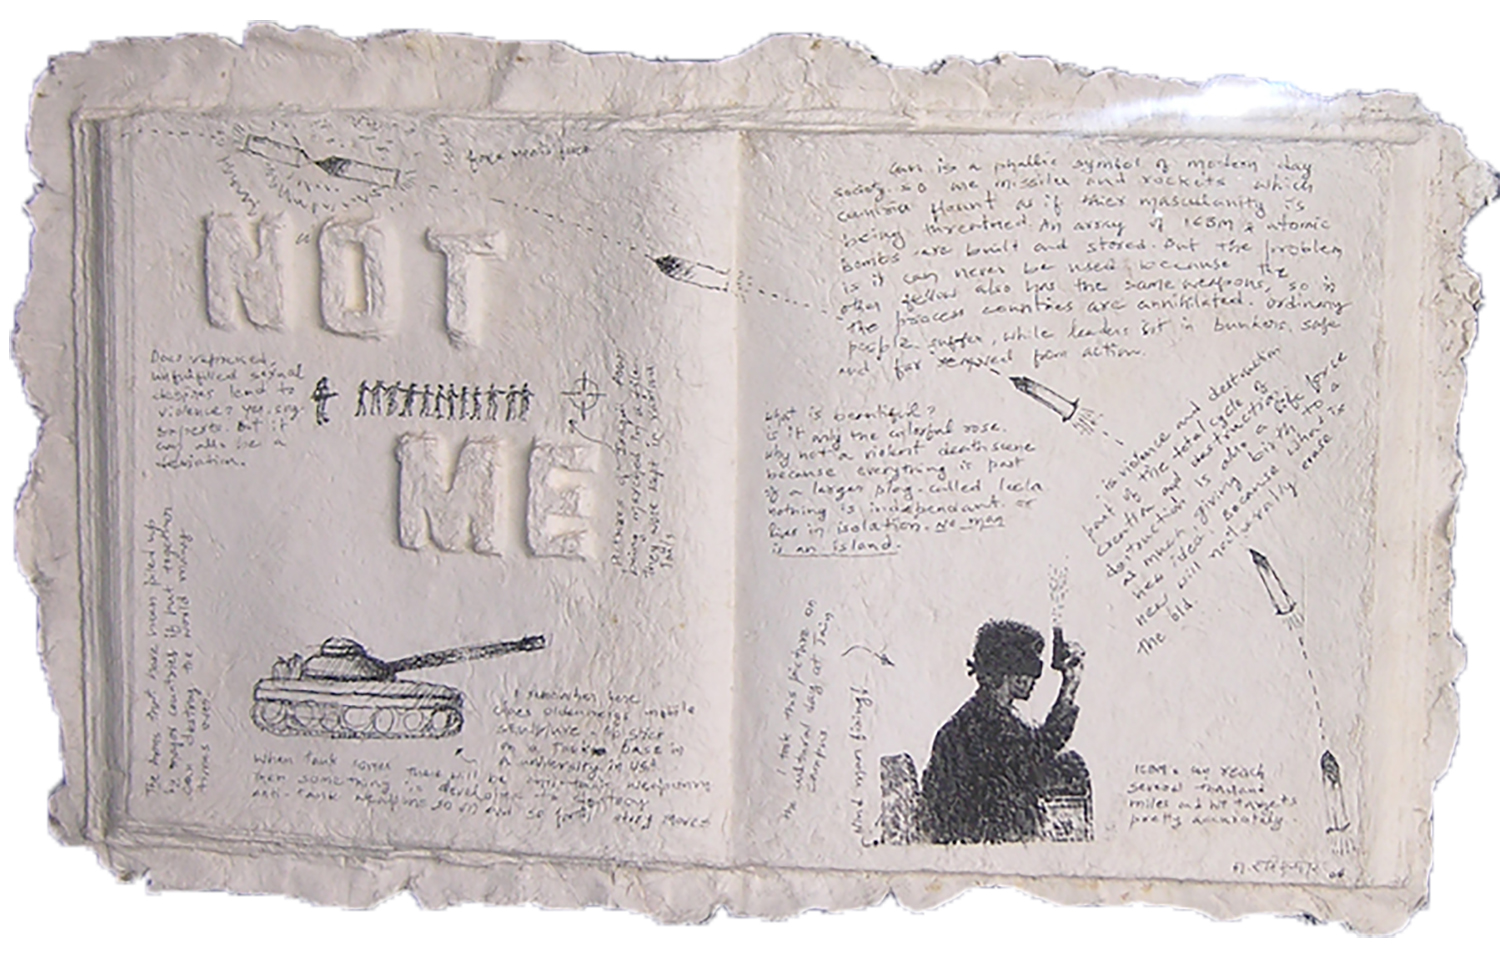 force meets force
NOT
ME
Does repressed,
unfulfilled sexual
desires lead to
violence? yes, say
experts. But it
can also be a
deviation.
being marched in a file
they were kept in
jails
The arms that have been piled up
by major countries if put together
can destroy the world many
times over
I remember here
Claes Oldenberg's mobile
sculpture a lipstick
on a tank base in
A university in USA
When tank comes there will be anti-tank weaponry
Then something is developed to destroy
anti-tank weapons so on and so forth
Gun is a phallic symbol of modern day
society. so are missiles and rockets which
countries flaunt as if thier masculanity is
being threatned. An array of ICBM & atomic
Bombs are built and stored. But the problem
is it can never be used because the
other fellow also has the same weapons, so in
the process countries are annihilated. ordinary
people suffer, while leaders sit in bunkers, safe
and far removed from action.
what is beautiful?
is it only the colorful rose.
why not a violent death scene
because everything is part
of a larger play called leela
nothing is independant. or
lives in isolation. no man
is an island.
is violence and destruction
part of the total cycle of
creation and destruction.
destruction is also a life force
as much, giving birth to a
new idea. Because what is
new will naturally erase
the old.
I took this picture on
the cultural day at Jain
campus
blind man fighting
ICBM's can reach
several thousand
miles and hit targets
pretty accurately.